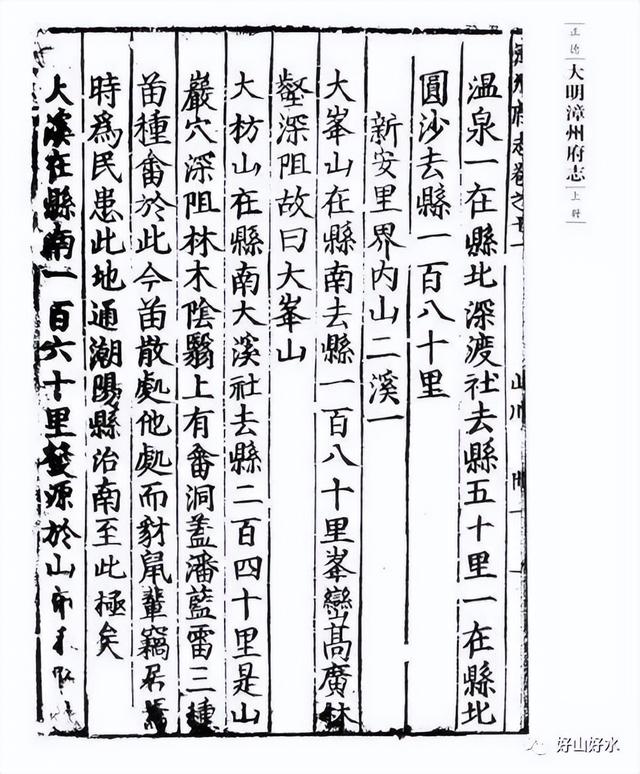 正德
大明漳州府志
上册
府志卷之
山川
温泉一在縣北深渡社去縣五十里一在縣北
圓沙去縣一百八十里
新安里界内山二溪一
大峯山在縣南去縣一百八十里峯巒髙廣林
壑深阻故曰大峯山
大枋山在縣南大溪社去縣二百四十里是山
巖穴深阻林木陰翳上有畬洞蓋潘藍雷三種
苗種畬於此今苗散處他處而豺鼠輩竊居焉
時爲民患此地通潮陽縣治南至此極矣
大溪在縣南一百六十里發源於山
好山好水